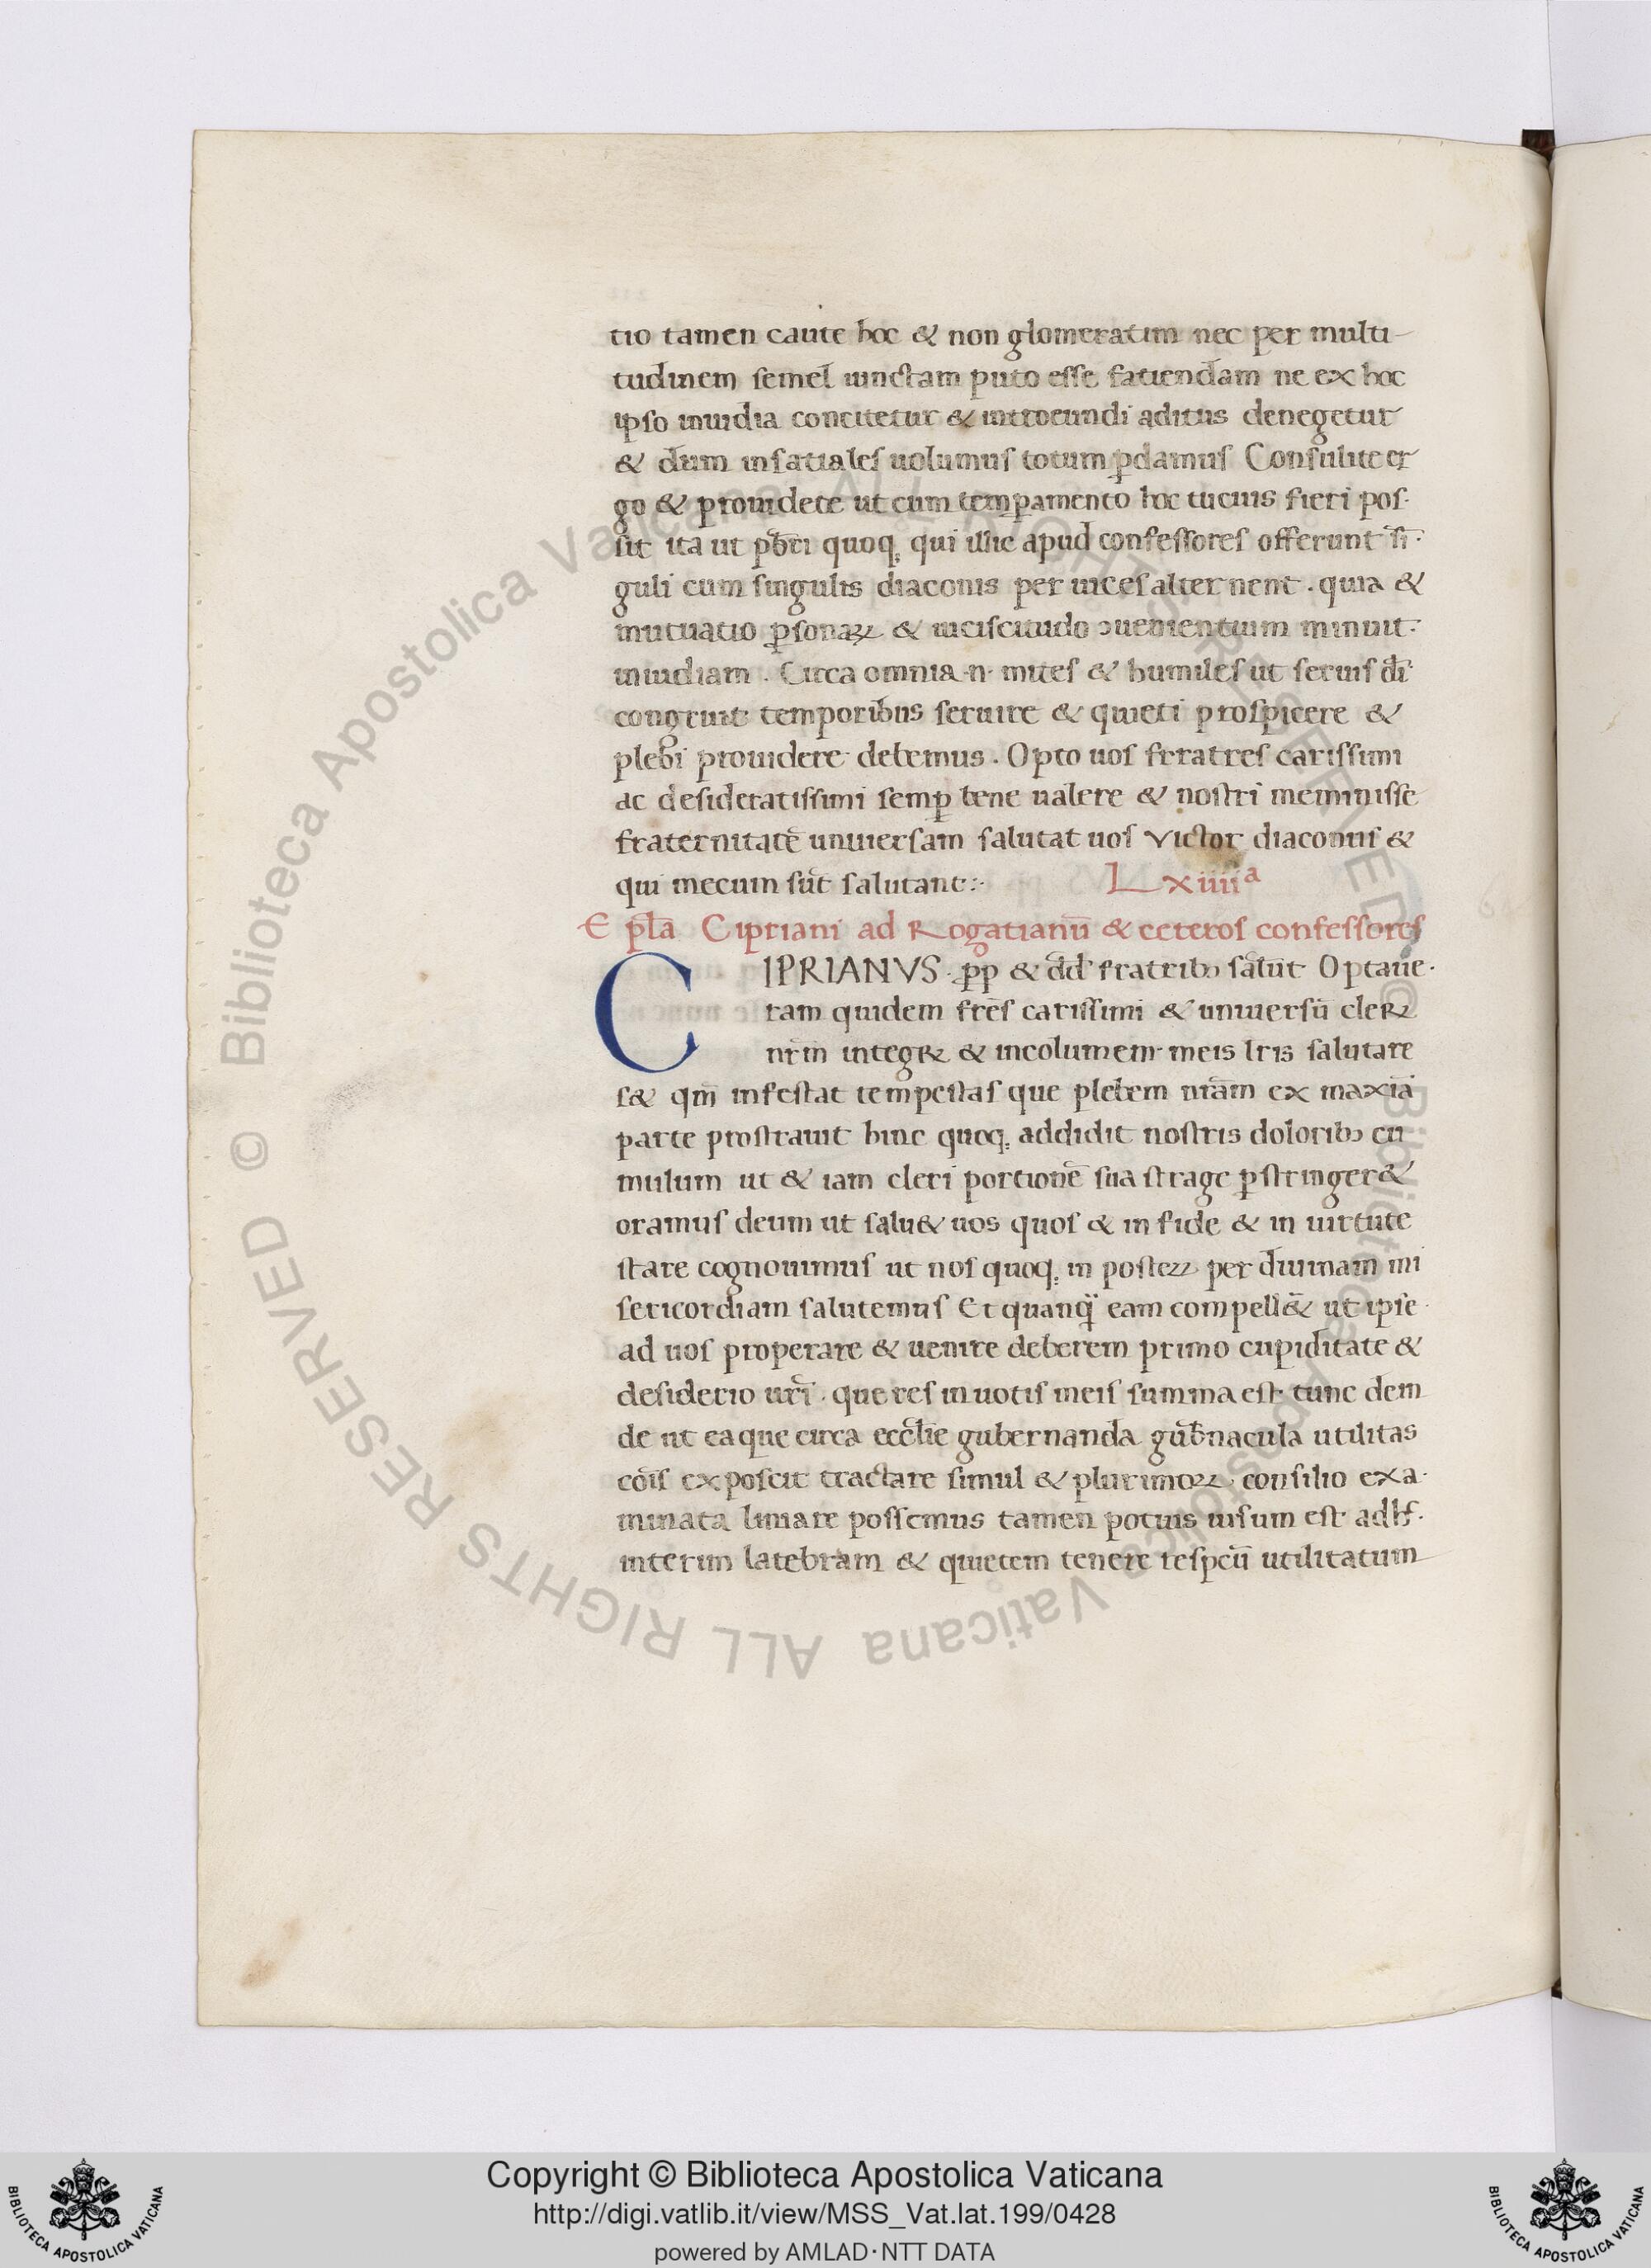 tio tamen caute hoc & non glomeratim nec per multi-
tudinem semel iunctam puto esse fatiendam ne ex hoc
ipso inuidia concitetur & introeundi aditus denegetur
& dum insatiales uolumus totum ꝑdamus Consulite er
go & prouidete ut cum temꝑamento hoc tucius fieri pos-
sit ita ut pb̄ri quoq; qui illic apud confessores offerunt sī
guli cum singulis diaconis per uices alternent . quia &
mutuatio ꝑsonaꝝ & uiciscitudo ꝯuenientium minuit
inuidiam . Circa omnia .n. mites & humiles ut seruis dī
congruit temporibus seruire & quieti prospicere &
plebi prouidere debemus . Opto uos frratres carissimi
ac desideratissimi semꝑ bene ualere & nostri meminisse
fraternitatē uniuersam salutat uos Victor diaconus &
qui mecum sūt salutant :·
Lxiiiiª
Epl̄a Cipriani ad Rogatianū & ceteros confessores
CIPRIANVS . pp̄ & dd̄ fratribꝰ salūt Optaue-
ram quidem frēs carissimi & uniuersū cleꝝ
nrm̄ integꝝ & incolumem meis lr̄is salutare
s& qm̄ infestat tempestas que plebem nrām ex maxīa
parte prostrauit hinc quoq; addidit nostris doloribꝰ cu
mulum ut & iam cleri portionē sua strage ꝑstringer&
oramus deum ut salu& uos quos & in fide & in uirtute
stare cognouimus ut nos quoq; in posteꝝ per diuinam mi
sericordiam salutemus Et quanq̄ eam compell& ut ipse
ad uos properare & uenire deberem primo cupiditate &
desiderio urī . que res in uotis meis summa est tunc dem
de ut ea que circa eccl̄ie gubernanda gub̄nacula utilitas
cōis exposcit tractare simul & plurimoꝝ consilio exa-
minata limare possemus tamen potuis uisum est adh̄.
interim latebram & quietem tenere respcū utilitatum
Copyright © Biblioteca Apostolica Vaticana
http://digi.vatlib.it/view/MSS_Vat.lat.199/0428
powered by AMLAD·NTT DATA
BIBLIOTECA APOSTOLICA VATICANA
BIBLIOTECA APOSTOLICA VATICANA
© Biblioteca Apostolica Vaticana ALL RIGHTS RESERVED © Biblioteca Apostolica Vaticana ALL RIGHTS RESERVED